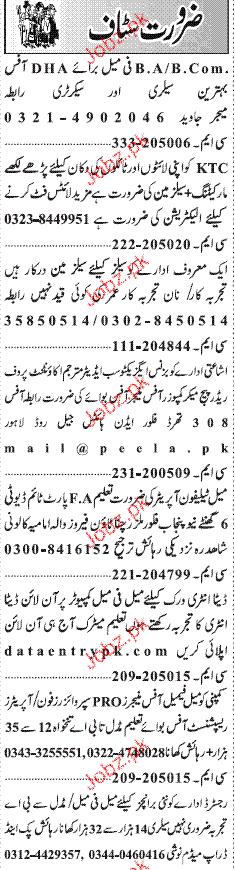 ضرورت سٹاف
B.A/B.Com. فی میل برائے DHA آفس
بہترین سیلری اور سیکرٹری رابطہ
میجر جاوید 0321-4902046
سی ایم۔333-205006
KTC کو اپنی لائٹوں اور ٹائلوں کی دکان کیلئے پڑھے لکھے
مارکیٹنگ+سیلز مین کی ضرورت ہے مزید لائٹس فٹ کرنے
کیلئے الیکٹریشن کی ضرورت ہے 0323-8449951
سی ایم۔222-205020
ایک معروف ادارے کو سیلز کیلئے سیلز مین درکار ہیں
تجربہ کار/ نان تجربہ کار عمر کی کوئی قید نہیں رابطہ
35850514/0302-8450514
سی ایم۔111-204844
اشاعتی ادارے کو بزنس ایگزیکٹو سب ایڈیٹر مترجم اکاؤنٹنٹ پروف
ریڈر پیج میکر کمپوزر آفس بوائے کی ضرورت رابطہ آفس
308 تھرڈ فلور ایڈن ہائٹس جیل روڈ لاہور
mail@peela.pk
سی ایم۔231-200509
میل ٹیلیفون آپریٹر کی ضرورت تعلیم F.A پارٹ ٹائم ڈیوٹی
6 گھنٹے نیو پنجاب فلور ملز رچنا ٹاؤن فیروز والہ امامیہ کالونی
شاہدرہ نزدیکی رہائش ترجیح 0300-8416152
سی ایم۔221-204799
ڈیٹا انٹری ورک کیلئے میل فی میل کمپیوٹر پر آن لائن ڈیٹا
انٹری کا تجربہ رکھتے ہوں تعلیم میٹرک آج ہی آن لائن
اپلائی کریں dataentrypk.com
سی ایم۔209-205015
کمپنی کو میل فیمیل آفس منیجرز PRO سپروائزر فون/آپریٹرز
ریسپشنسٹ آفس بوائے تعلیم مڈل تا بی اے تنخواہ 12 سے 35
ہزار+رہائش کھانا 0343-3255551,0322-4748028
سی ایم۔209-205015
رجسٹرڈ ادارے کو نئی برانچز کیلئے میل فی میل/مڈل سے بی اے
تجربہ ضروری نہیں سیلری 14 ہزار سے 32 ہزار کھانا رہائش پک اینڈ
ڈراپ میڈم نوشی 0312-4429357, 0344-0460416
Jobz.pk
Jobz.pk
Jobz.pk
Jobz.pk
Jobz.pk